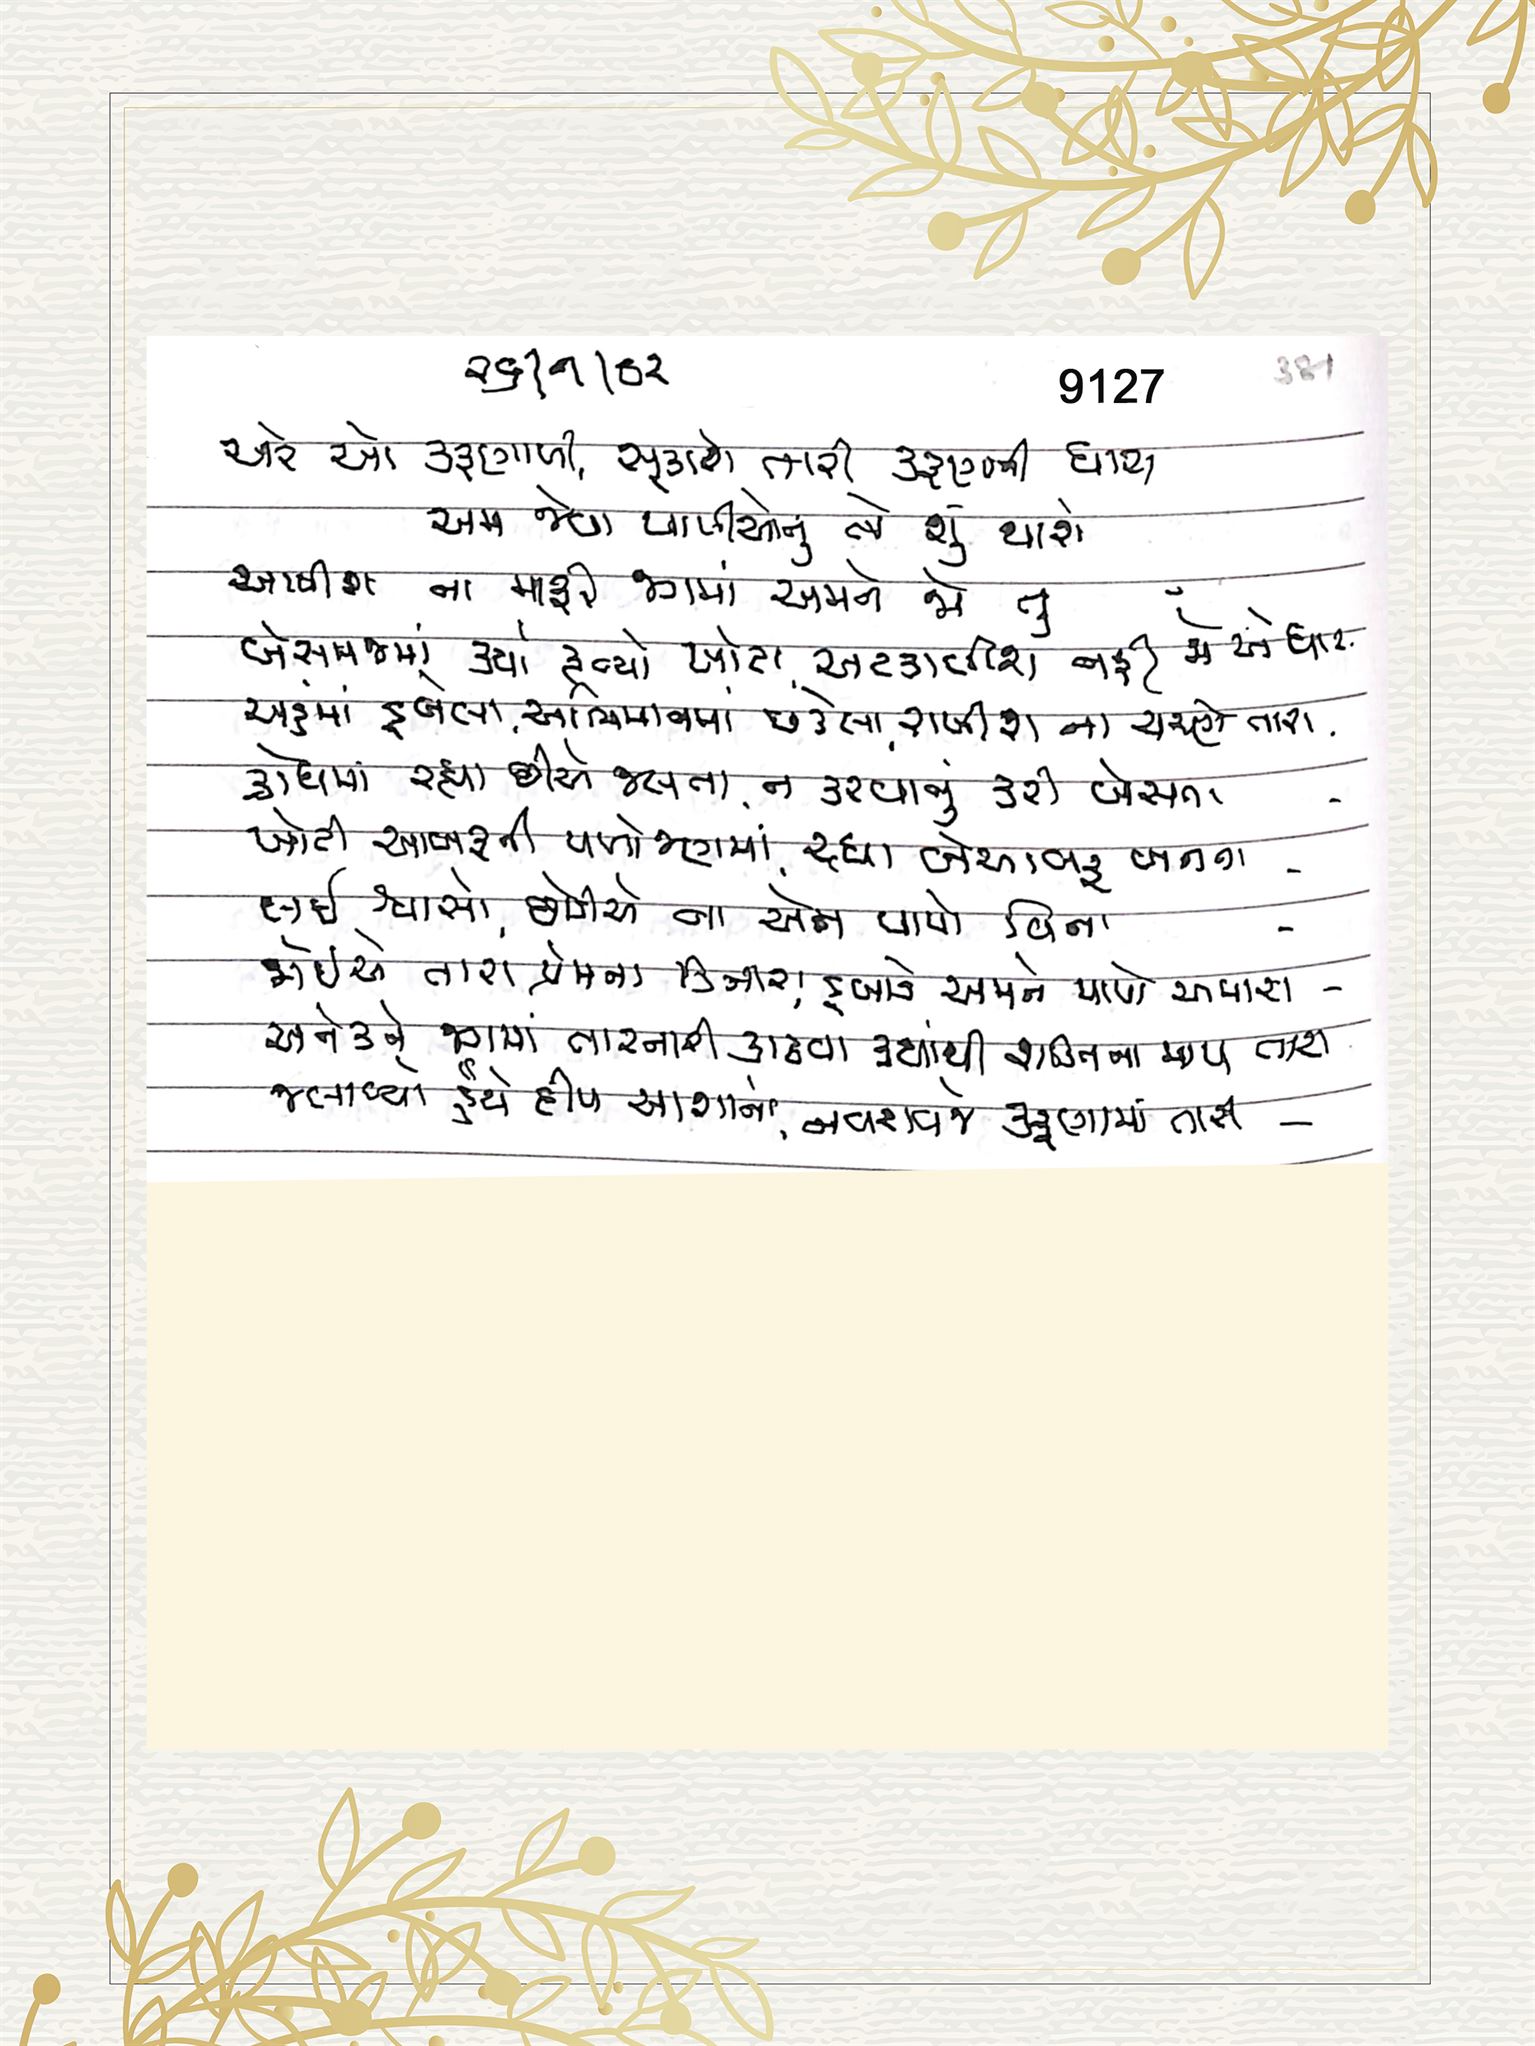 9127
અરે ઓ કરૂણાળી, સૂકાશે તારી કરૂણાની ધારા
અમ જેવા પાપીઓનું તો શું થાશે
આપીશ ના માફી જગમાં અમને જો તું
બેસમજમાં કર્યા કૃત્યો ખોટા, અટકાવીશ નહીં જો એ ધારા
અહંમાં ડૂબેલા, અભિમાનમાં છકેલા, રાખીશ ના ચરણે તારા.
ક્રોધમાં રહ્યા છીએ જલતા, ન કરવાનું કરી બેસતા -
ખોટી આબરૂની પળોજણમાં, રહ્યા બેઆબરૂ બનતા -
લઈ શ્વાસો, છોડીએ ના એને પાપો વિના -
જોઈએ તારા પ્રેમના કિનારા, ડૂબાડે અમને પાપો અમારા -
અનેકને જગમાં તારનારી કાઢવા ક્યાંથી શક્તિના માપ તારા
જલાવ્યો હૈયે દીપ આશાનો, નવરાવજે કરૂણામાં તારી -